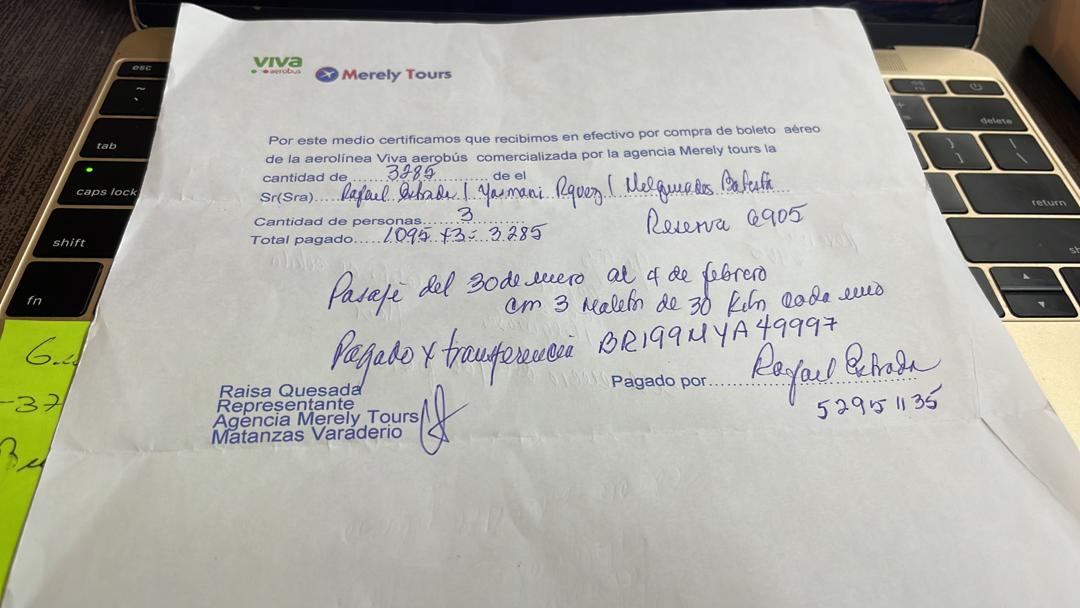 viva
aerobus
Merely Tours
Por este medio certificamos que recibimos en efectivo por compra de boleto aéreo
de la aerolínea Viva aerobús comercializada por la agencia Merely tours la
cantidad de 3285 de el
Sr(Sra) Rafael Estrada / Yasmani / Melquiades
Cantidad de personas 3
Total pagado 1095 x 3 = 3.285
Reserva 6905
Pasaje del 30 de enero al 4 de febrero
3 de 30
Pagado x transferencia BR199MYA49997
Pagado por Rafael Estrada
52951135
Raisa Quesada
Representante
Agencia Merely Tours
Matanzas Varaderio
esc
tab
caps lock
shift
fn
delete
return